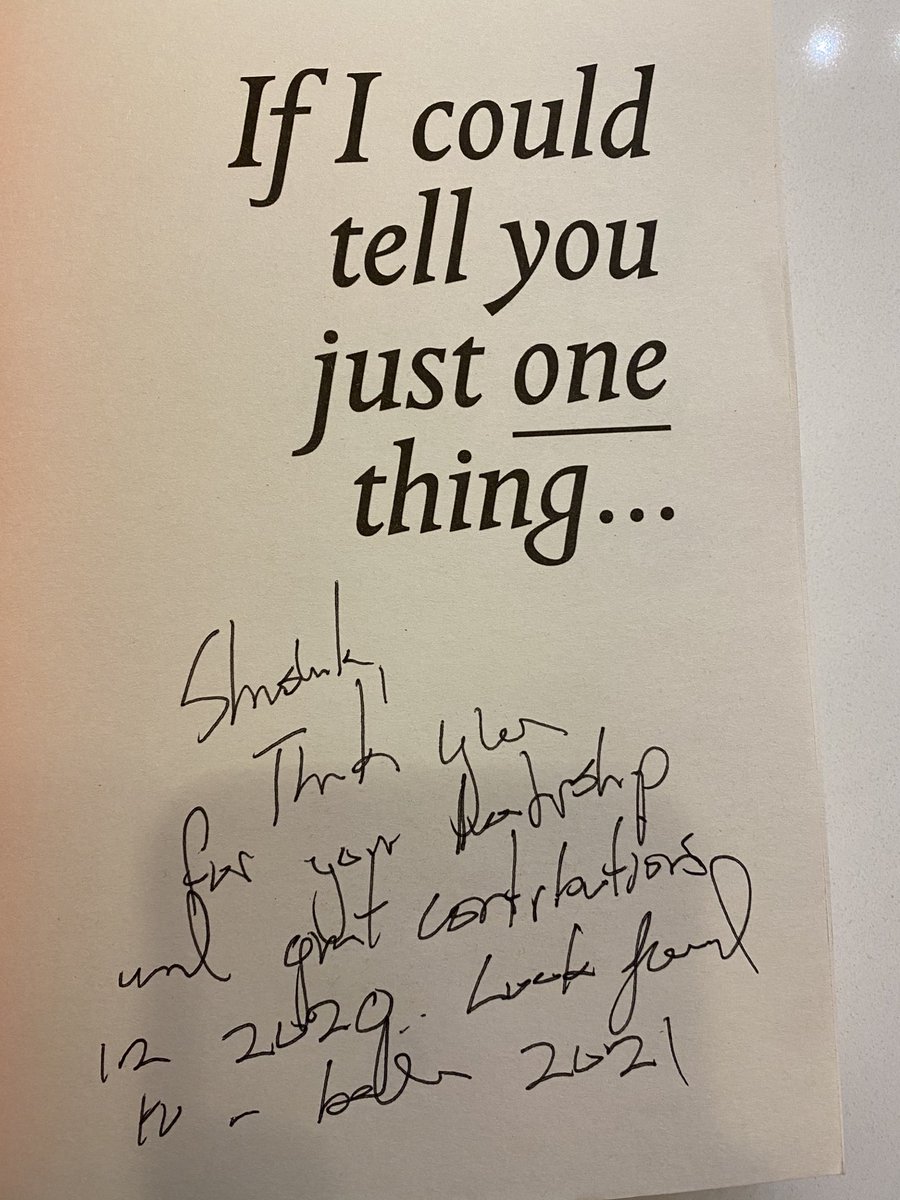 If I could
tell you
just one
thing...
Thank you
for your leadership
and great contributions
in 2020.. Look forward
to a better 2021